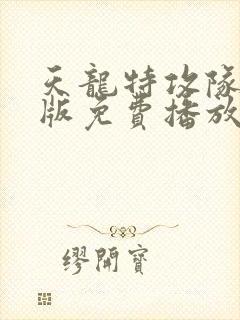 天龍特攻隊
版免費播放
缪開寶